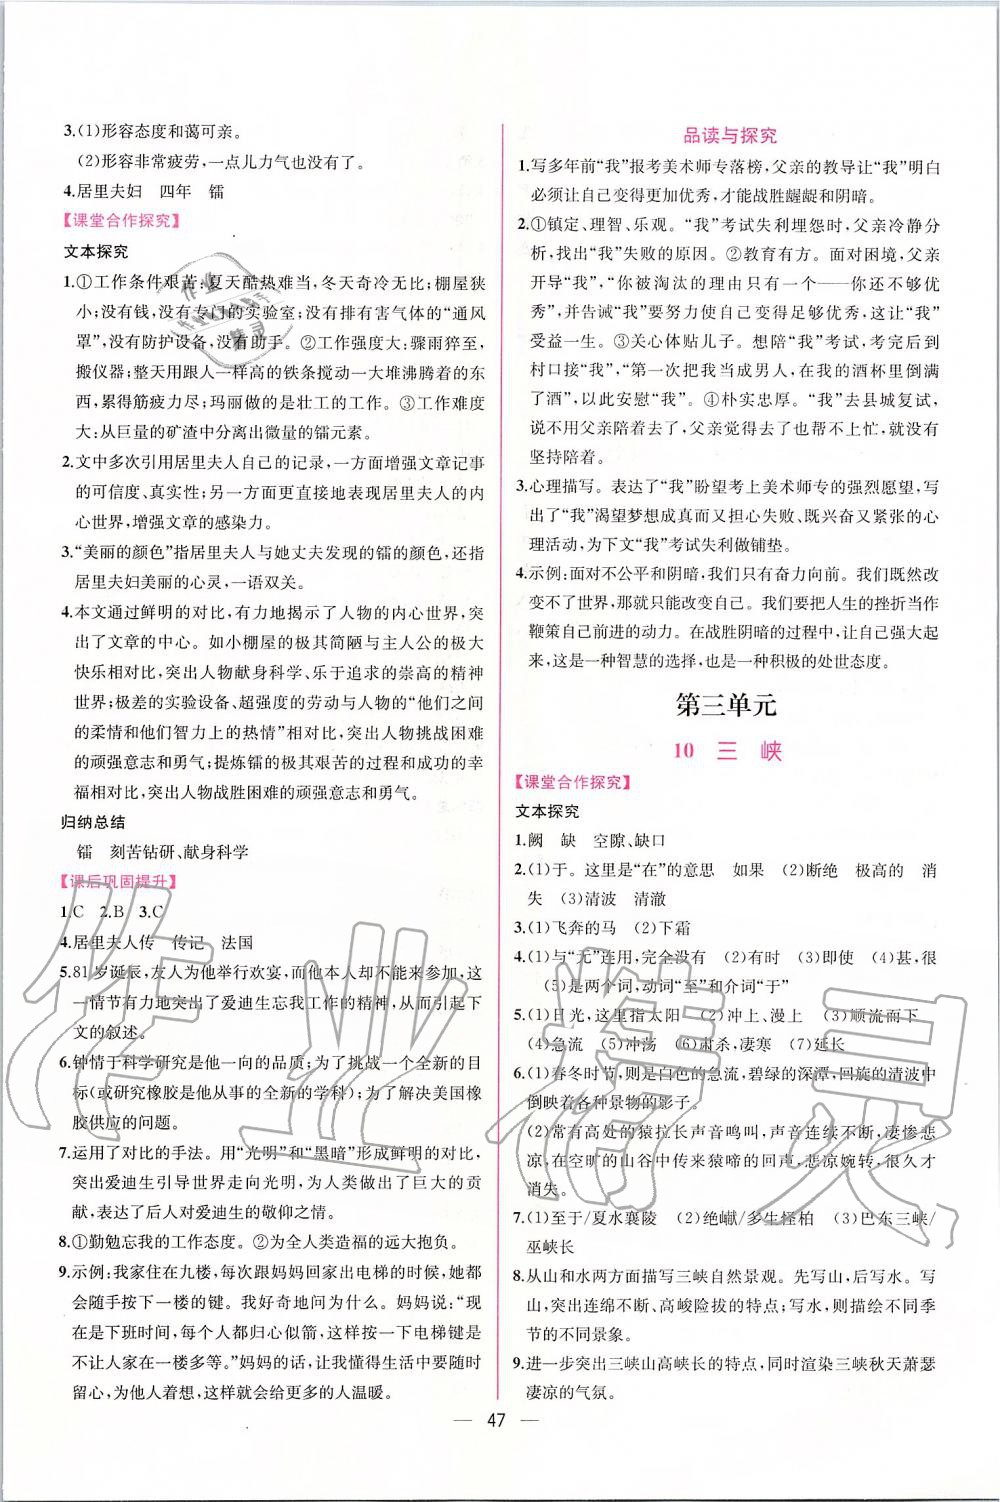 3.(1)形容态度和蔼可亲。
(2)形容非常疲劳,一点儿力气也没有了。
4.居里夫妇 四年 镭
【课堂合作探究】
文本探究
1.①工作条件艰苦:夏天酷热难当,冬天奇冷无比;棚屋狭
小;没有钱,没有专门的实验室;没有排有害气体的“通风
罩”,没有防护设备,没有助手。②工作强度大;骤雨猝至,
搬仪器;整天用跟人一样高的铁条搅动一大堆沸腾着的东
西,累得筋疲力尽;玛丽做的是壮工的工作。③工作难度
大:从巨量的矿渣中分离出微量的镭元素。
2.文中多次引用居里夫人自己的记录,一方面增强文章记事
的可信度、真实性;另一方面更直接地表现居里夫人的内
心世界,增强文章的感染力。
3.“美丽的颜色”指居里夫人与她丈夫发现的镭的颜色,还指
居里夫妇美丽的心灵,一语双关。
4.本文通过鲜明的对比,有力地揭示了人物的内心世界,突
出了文章的中心。如小棚屋的极其简陋与主人公的极大
快乐相对比,突出人物献身科学、乐于追求的崇高的精神
世界;极差的实验设备、超强度的劳动与人物的“他们之间
的柔情和他们智力上的热情”相对比,突出人物挑战困难
的顽强意志和勇气;提炼镭的极其艰苦的过程和成功的幸
福相对比,突出人物战胜困难的顽强意志和勇气。
归纳总结
镭 刻苦钻研、献身科学
【课后巩固提升】
1.C 2.B 3.C
4.居里夫人传 传记 法国
5.81岁诞辰,友人为他举行欢宴,而他本人却不能来参加,这
一情节有力地突出了爱迪生忘我工作的精神,从而引起下
文的叙述。
6.钟情于科学研究是他一向的品质;为了挑战一个全新的目
标(或研究橡胶是他从事的全新的学科);为了解决美国橡
胶供应的问题。
7.运用了对比的手法。用“光明”和“黑暗”形成鲜明的对比,
突出爱迪生引导世界走向光明,为人类做出了巨大的贡
献,表达了后人对爱迪生的敬仰之情。
8.①勤勉忘我的工作态度。②为全人类造福的远大抱负。
9.示例:我家住在九楼,每次跟妈妈回家出电梯的时候,她都
会随手按下一楼的键。我好奇地问为什么。妈妈说:“现
在是下班时间,每个人都归心似箭,这样按一下电梯键是
不让人家在一楼多等。”妈妈的话,让我懂得生活中要随时
留心,为他人着想,这样就会给更多的人温暖。
品读与探究
1.写多年前“我”报考美术师专落榜,父亲的教导让“我”明白
必须让自己变得更加优秀,才能战胜龌龊和阴暗。
2.①镇定、理智、乐观。“我”考试失利埋怨时,父亲冷静分
析,找出“我”失败的原因。②教育有方。面对困境,父亲
开导“我”,“你被淘汰的理由只有一个——你还不够优
秀”,并告诫“我”要努力使自己变得足够优秀,这让“我”
受益一生。③关心体贴儿子。想陪“我”考试,考完到
村口接“我”,“第一次把我当成男人,在我的酒杯里倒满
了酒”,以此安慰“我”。④朴实忠厚。“我”去县城复试,
说不用父亲陪着去,父亲觉得去了也帮不上忙,就没有
坚持陪着。
3.心理描写。表达了“我”盼望考上美术师专的强烈愿望,写
出了“我”渴望梦想成真而又担心失败、既兴奋又紧张的心
理活动,为下文“我”考试失利做铺垫。
4.示例:面对不公平和阴暗,我们只有奋力向前。我们既然改
变不了世界,那就只能改变自己。我们要把人生的挫折当作
鞭策自己前进的动力。在战胜阴暗的过程中,让自己强大起
来,这是一种智慧的选择,也是一种积极的处世态度。
第三单元
10 三 峡
【课堂合作探究】
文本探究
1.阙 缺 空隙、缺口
2.(1)于。这里是“在”的意思 如果 (2)断绝 极高的 消
失 (3)清波 清澈
3.(1)飞奔的马 (2)下霜
4.(1)与“无”连用,完全没有 (2)有时 (3)即使 (4)甚,很
(5)是两个词,动词“至”和介词“于”
5.(1)日光,这里指太阳 (2)冲上、漫上 (3)顺流而下
(4)急流 (5)冲荡 (6)肃杀、凄寒 (7)延长
6.(1)春冬时节,则是白色的急流,碧绿的深潭,回旋的清波中
倒映着各种景物的影子。
(2)常有高处的猿拉长声音鸣叫,声音连续不断,凄惨悲
凉,在空旷的山谷中传来猿啼的回声,悲凉婉转,很久才
消失。
7.(1)至于/夏水襄陵 (2)绝巘/多生怪柏 (3)巴东三峡/
巫峡长
8.从山和水两方面描写三峡自然景观。先写山,后写水。写
山,突出连绵不断、高峻险拔的特点;写水,则描绘不同季
节的不同景象。
9.进一步突出三峡山高峡长的特点,同时渲染三峡秋天萧瑟
凄凉的气氛。
47
作业精灵
作业精灵